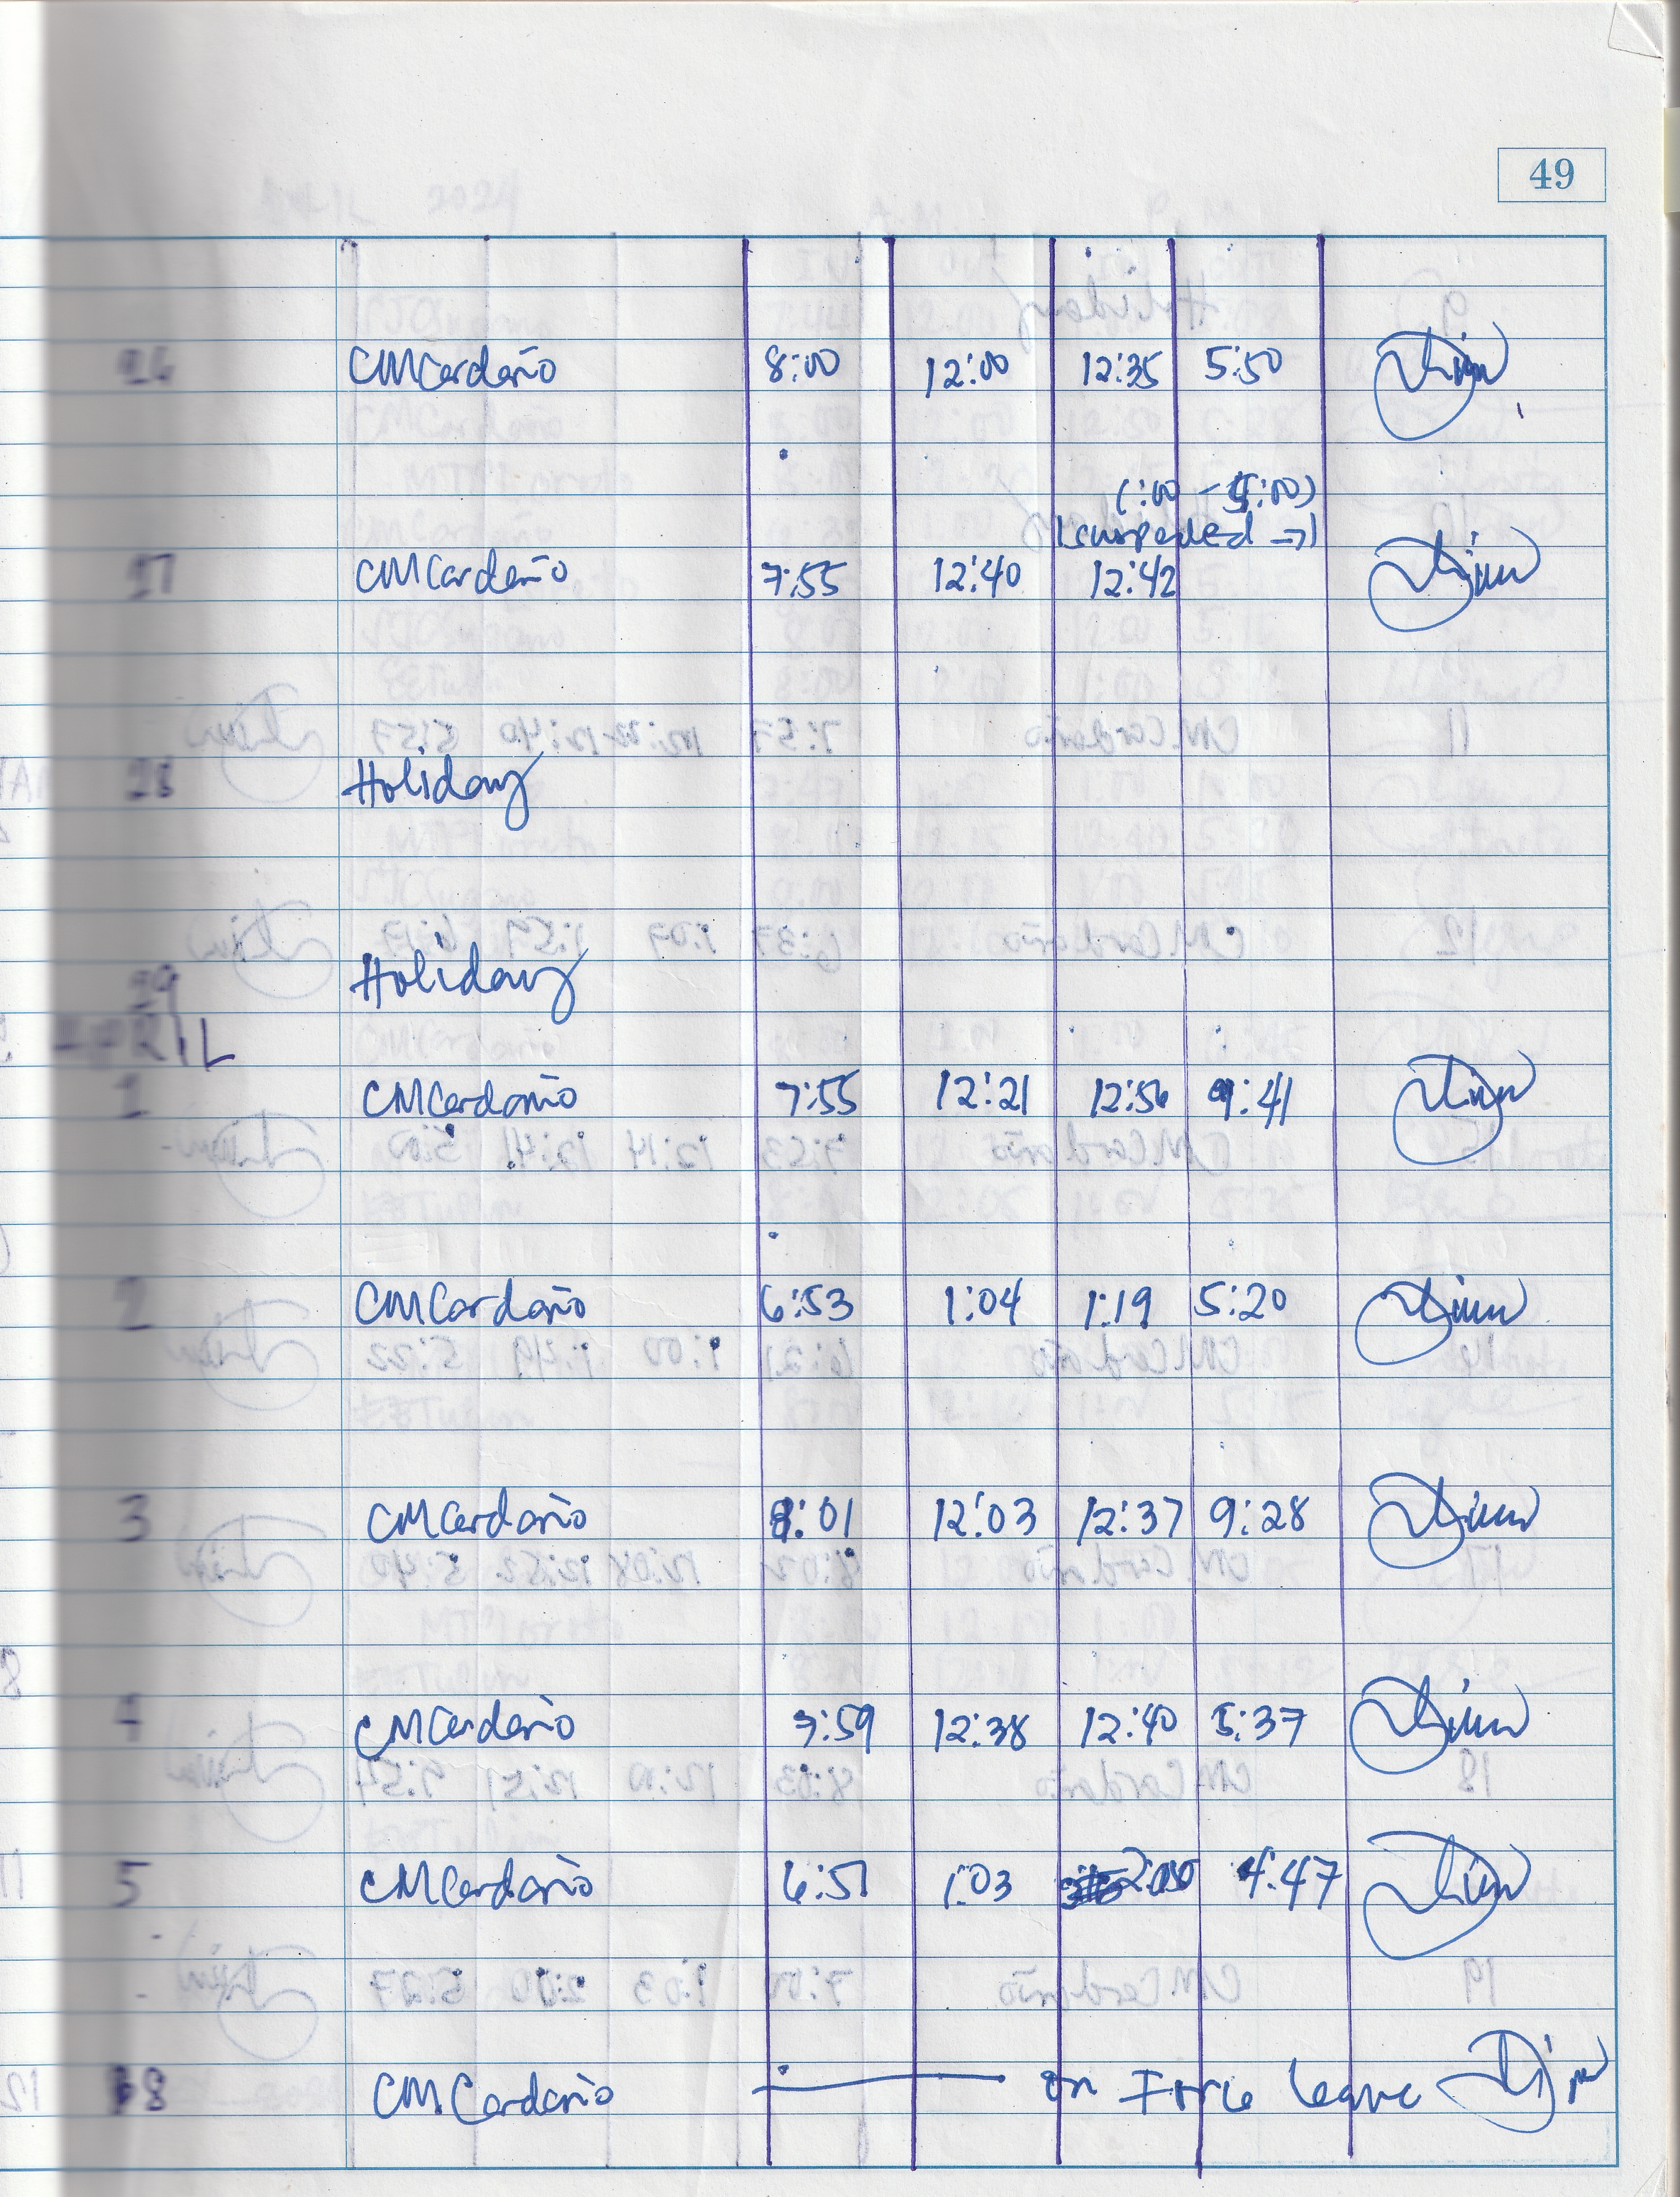 49
26 CMCardaño 8:00 12:00 12:35 5:50
(1:00 - 5:00)
suspended →
27 CMCardaño 7:55 12:40 12:42
28 Holiday
29 Holiday
APRIL
1 CMCardaño 7:55 12:21 12:56 9:41
2 CMCardaño 6:53 1:04 1:19 5:20
3 CMCardaño 8:01 12:03 12:37 9:28
4 CMCardaño 7:59 12:38 12:40 5:37
5 CMCardaño 6:51 1:03 2:00 4:47
8 CMCardaño on Force leave